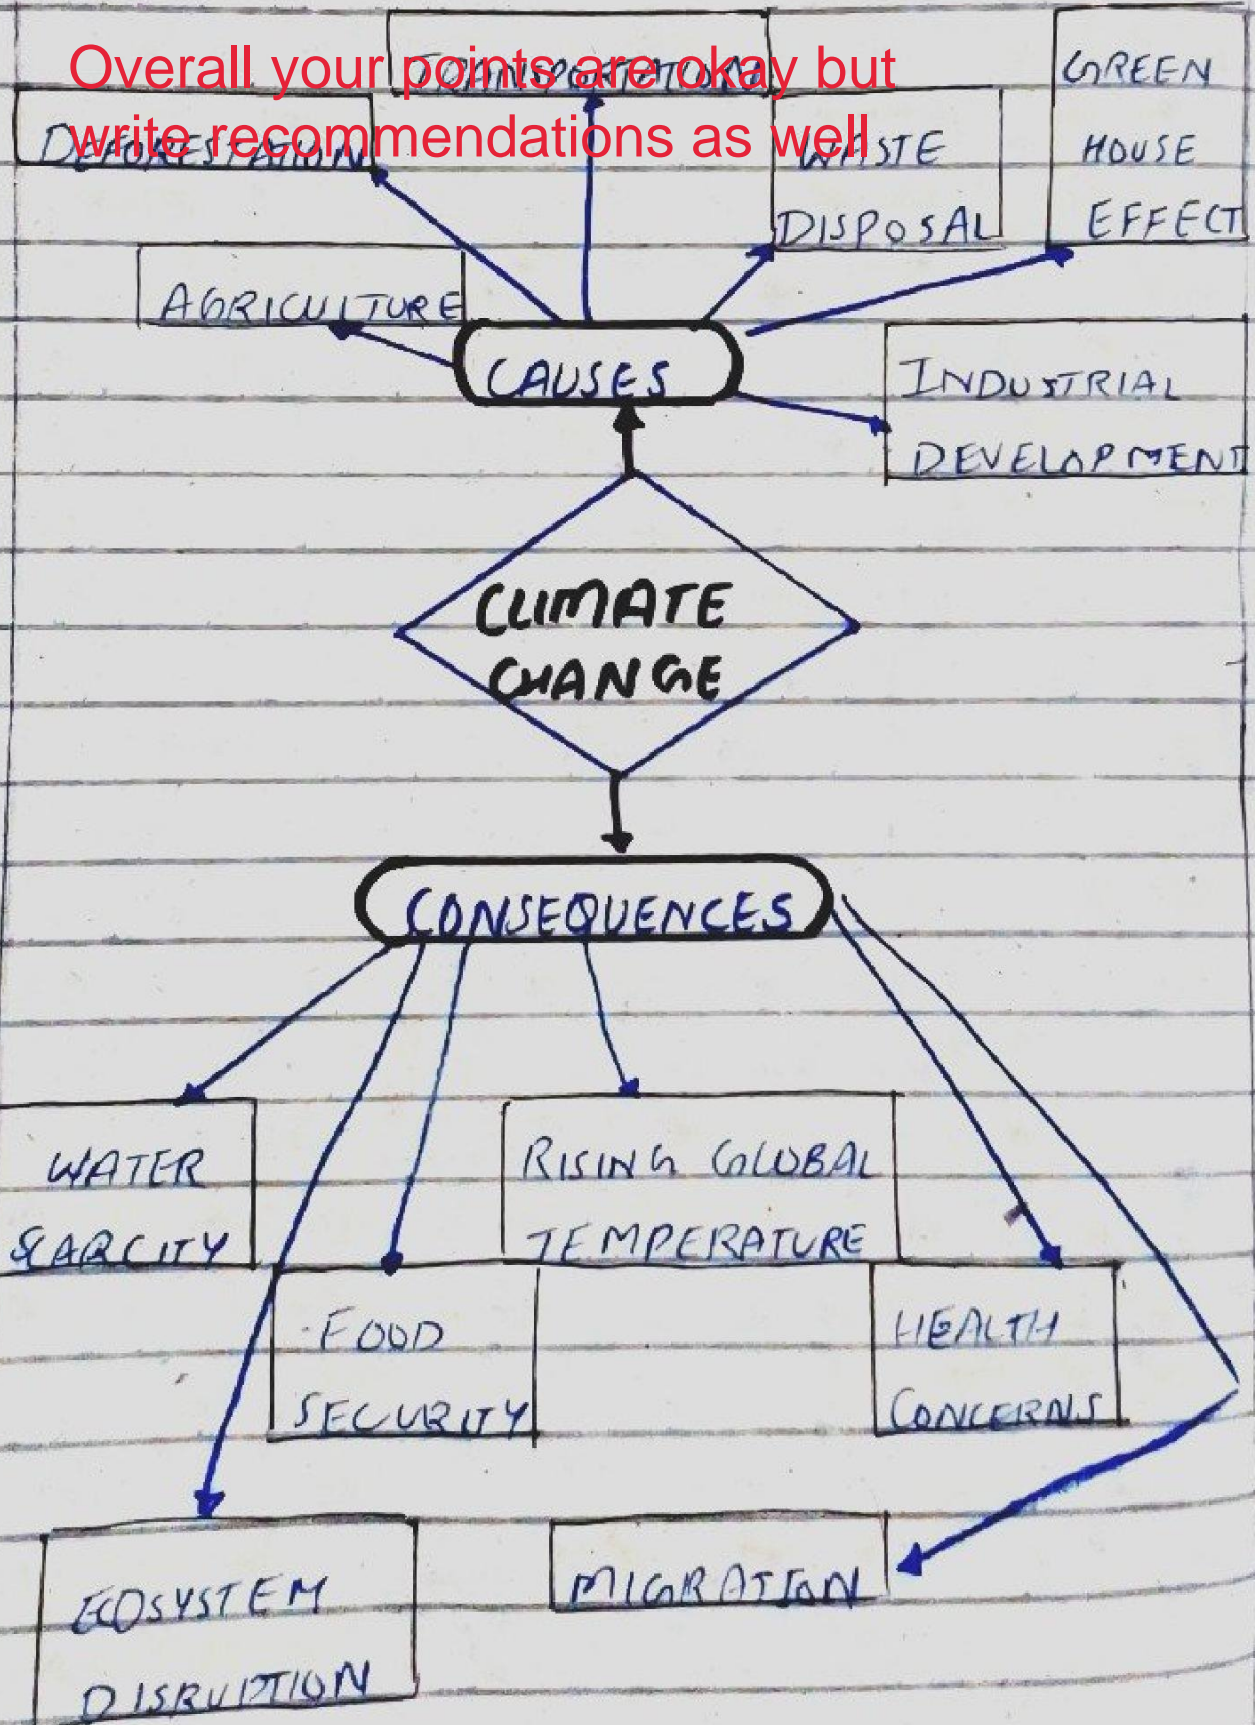 Overall your points are okay but
write recommendations as well
TRANSPORTATION
GREEN
HOUSE
EFFECT
DEFORESTATION
WASTE
DISPOSAL
AGRICULTURE
CAUSES
INDUSTRIAL
DEVELOPMENT
CLIMATE
CHANGE
CONSEQUENCES
WATER
SCARCITY
RISING GLOBAL
TEMPERATURE
FOOD
SECURITY
HEALTH
CONCERNS
ECOSYSTEM
DISRUPTION
MIGRATION